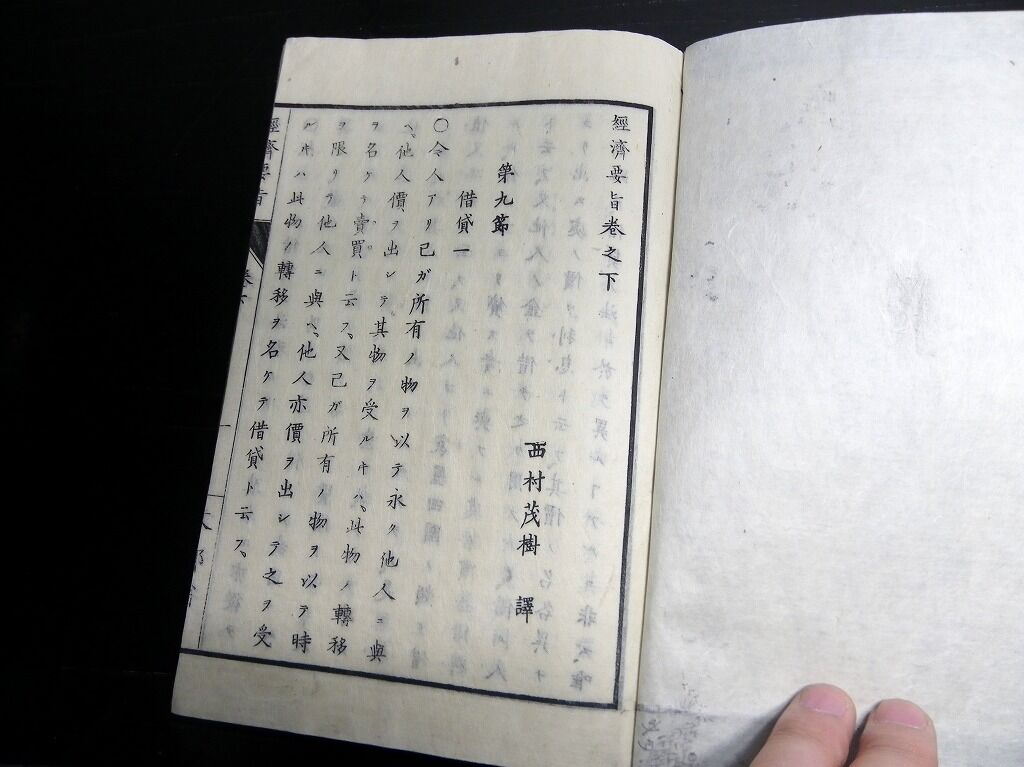 經濟要旨卷之下
西村茂樹 譯
第九節
借貸一
〇今人アリ己ガ所有ノ物ヲ以テ永ク他人ニ與
ヘ、他人價ヲ出シテ其物ヲ受ルキハ、此物ノ轉移
ヲ名ケテ賣買ト云フ、又己ガ所有ノ物ヲ以テ時
ヲ限リテ他人ニ與ヘ、他人亦價ヲ出シテ之ヲ受
ルキハ此物ノ轉移ヲ名ケテ借貸ト云フ、
經濟要旨